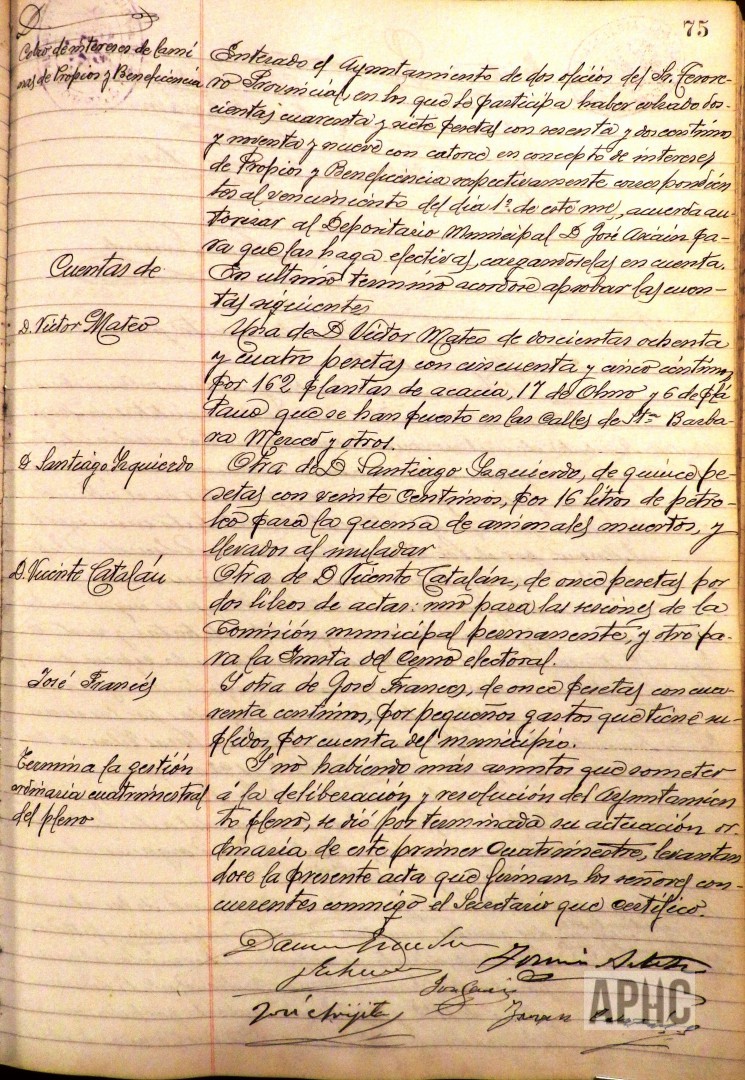 75
Cobro de intereses de lámi
nas de Propios y Beneficencia
Enterado el Ayuntamiento de dos oficios del Sr. Tesore-
ro Provincial, en los que le participa haber cobrado dos-
cientas cuarenta y siete pesetas con sesenta y dos centimos
y noventa y nueve con catorce en concepto de intereses
de Propios y Beneficencia respectivamente correspondien
tes al vencimiento del día 1º de este mes, acuerda au-
torizar al Depositario Municipal D. José pa-
ra que las haga efectivas, cargandoselas en cuenta.
Cuentas de
En ultimo termino acordose aprobar las cuen-
tas siguientes
D. Victor Mateo
Una de D Victor Mateo de doscientas ochenta
y cuatro pesetas con cincuenta y cinco céntimos
por 162 plantas de acacia, 17 de Olmo y 6 de plá
tano que se han puesto en las calles de Sta Barba-
ra Merced y otros.
D Santiago Izquierdo
Otra de D Santiago Izquierdo, de quince pe-
setas con veinte centimos, por 16 litros de petro-
leo para la quema de animales muertos, y
llevados al muladar
D. Vicente Catalán
Otra de D Vicente Catalán, de once pesetas por
dos libros de actas: uno para las sesiones de la
Comisión municipal permanente, y otro pa-
ra la Junta del Censo electoral.
José Francés
Y otra de José Frances, de once pesetas con cua-
renta centimos, por pequeños gastos que tiene su-
plidos por cuenta del municipio.
Termina la gestión
ordinaria cuatrimestral
del pleno
Y no habiendo más asuntos que someter
á la deliberación y resolución del Ayuntamien
to pleno, se dió por terminada su actuación or-
dinaria de este primer cuatrimestre, levantan
dose la presente acta que firman los señores con-
currentes conmigo el Secretario que certifico.
José
APHC